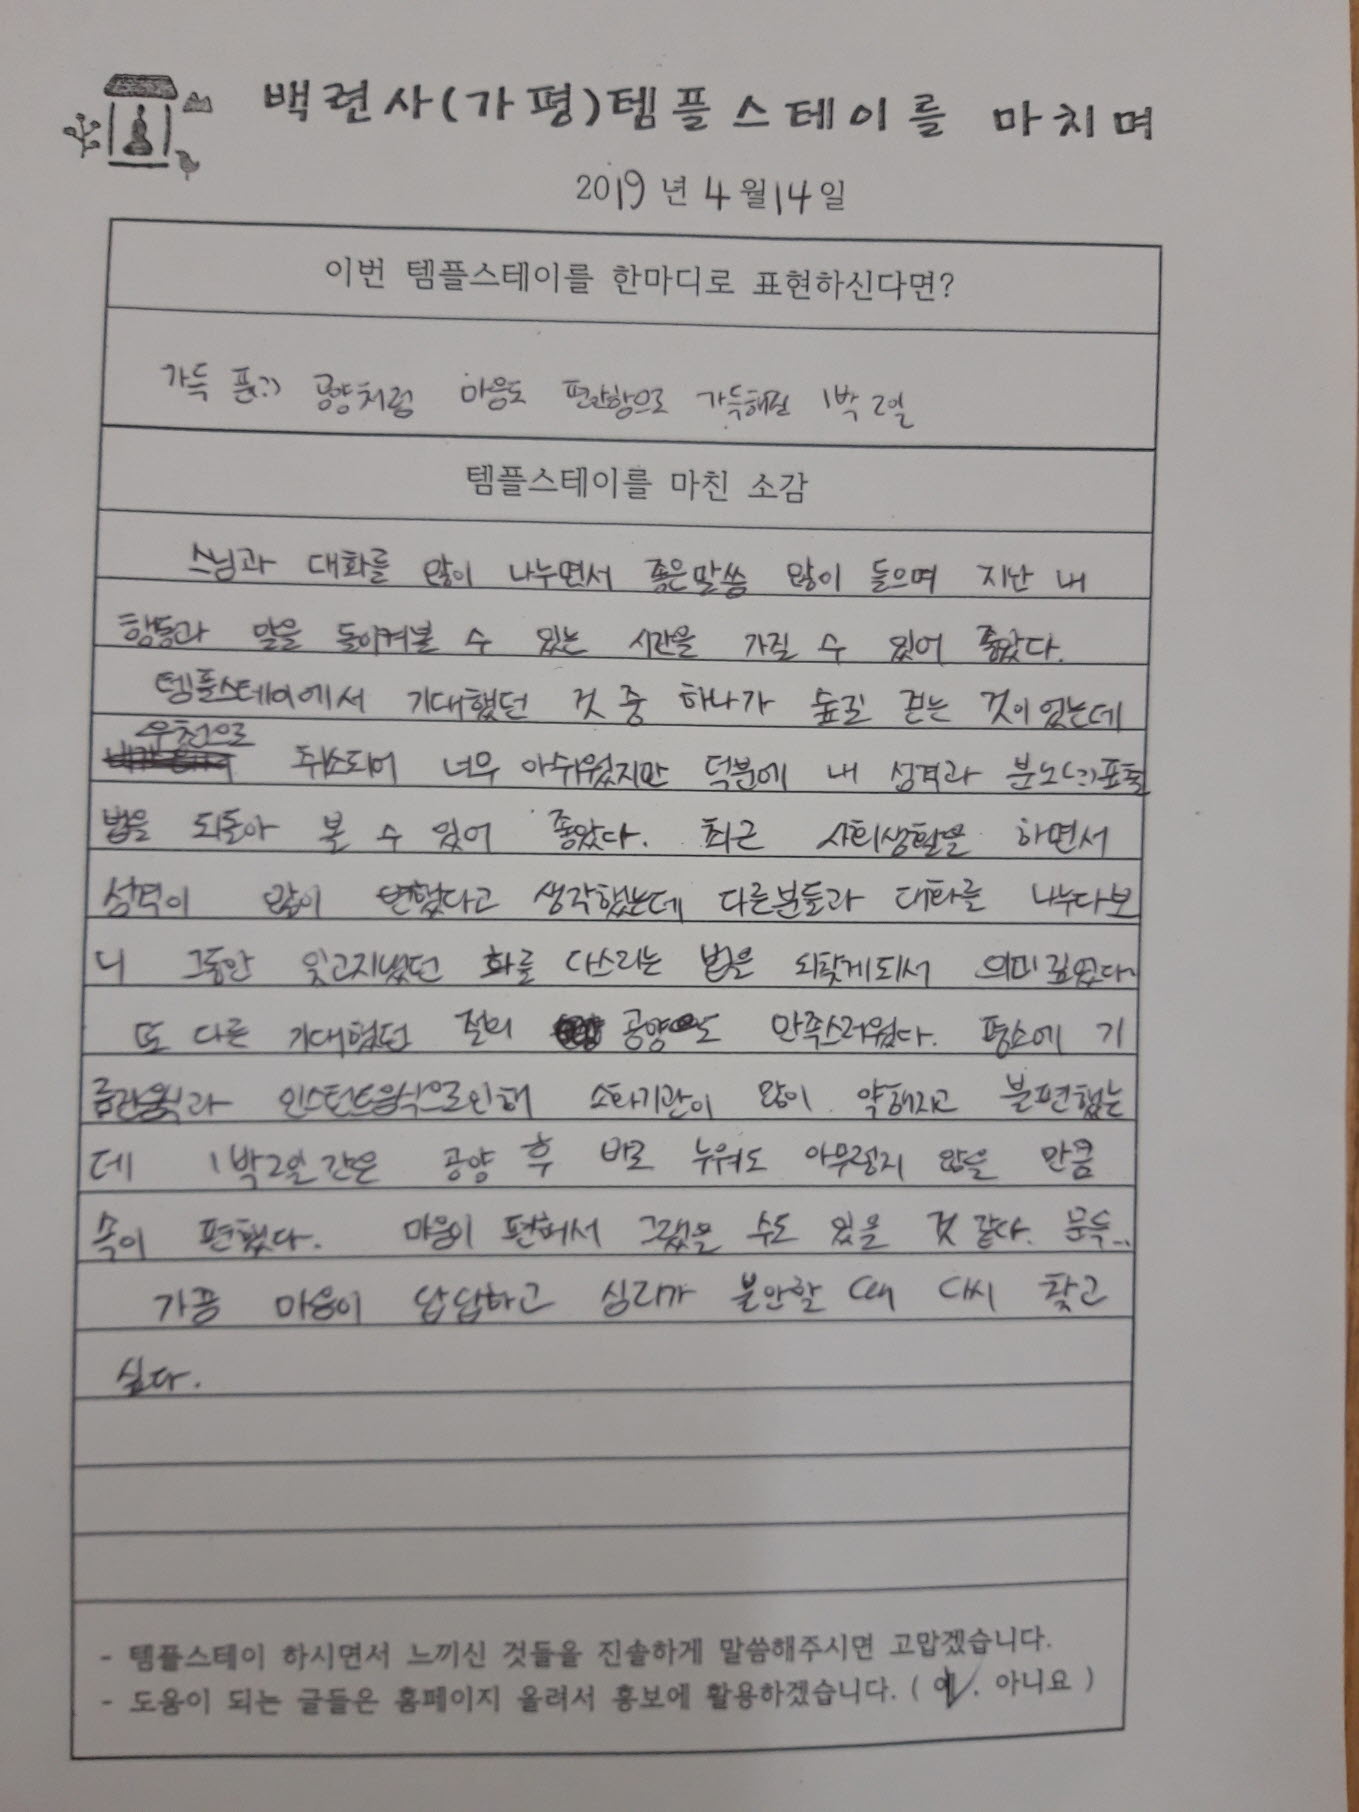 백련사(가평)템플스테이를 마치며
2019년 4월 14일
이번 템플스테이를 한마디로 표현하신다면?
가득 푼(?) 공양처럼 마음도 편안함으로 가득해진 1박 2일
템플스테이를 마친 소감
스님과 대화를 많이 나누면서 좋은말씀 많이 들으며 지난 내
행동과 말을 돌이켜볼 수 있는 시간을 가질 수 있어 좋았다.
템플스테이에서 기대했던 것 중 하나가 숲길 걷는 것이었는데
우천으로 취소되어 너무 아쉬웠지만 덕분에 내 성격과 분노(?)표출
법을 되돌아 볼 수 있어 좋았다. 최근 사회생활을 하면서
성격이 많이 변했다고 생각했는데 다른분들과 대화를 나누다보
니 그동안 잊고지냈던 화를 다스리는 법을 되찾게되서 의미깊었다.
또 다른 기대했던 절의 공양도 만족스러웠다. 평소에 기
름진음식과 인스턴트음식으로인해 소화기관이 많이 약해지고 불편했는
데 1박2일간은 공양 후 바로 누워도 아무렇지 않을 만큼
속이 편했다. 마음이 편해서 그랬을 수도 있을 것 같다. 문득..
가끔 마음이 답답하고 심리가 불안할 때 다시 찾고
싶다.
- 템플스테이 하시면서 느끼신 것들을 진솔하게 말씀해주시면 고맙겠습니다.
- 도움이 되는 글들은 홈페이지 올려서 홍보에 활용하겠습니다. ( 예, 아니요 )